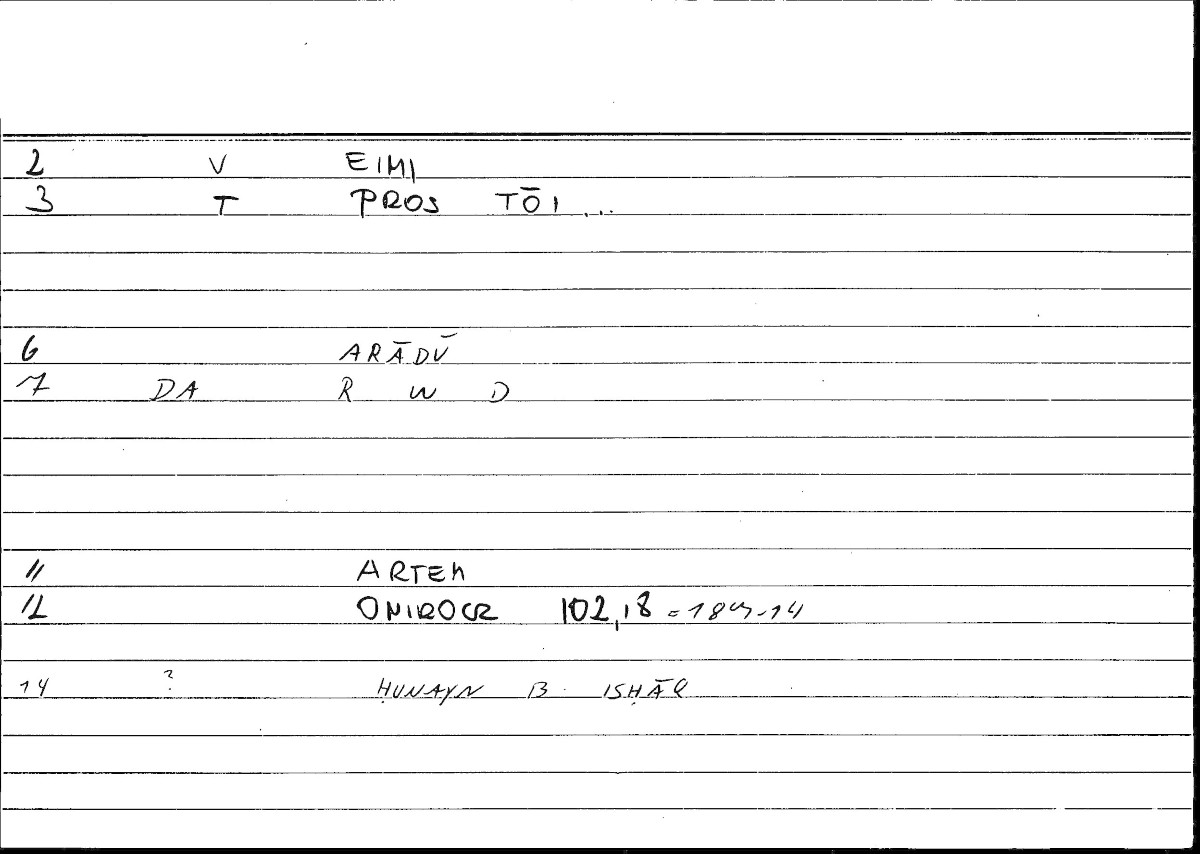 2 V EIMI
3 T PROS TŌI ...
6 ARĀDŪ
7 DA R W D
11 ARTEM
12 ONIROCR 102,18 = 189,14
14 ? ḤUNAYN B. ISḤĀQ